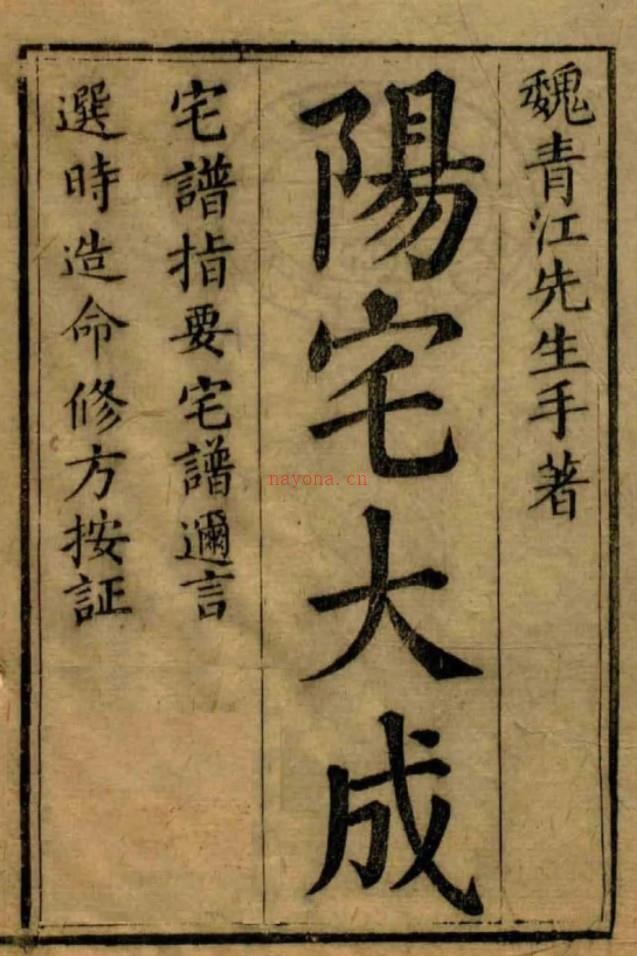 魏青江先生手著
陽宅大成
宅譜指要宅譜邇言
選時造命修方按証
nayona.cn